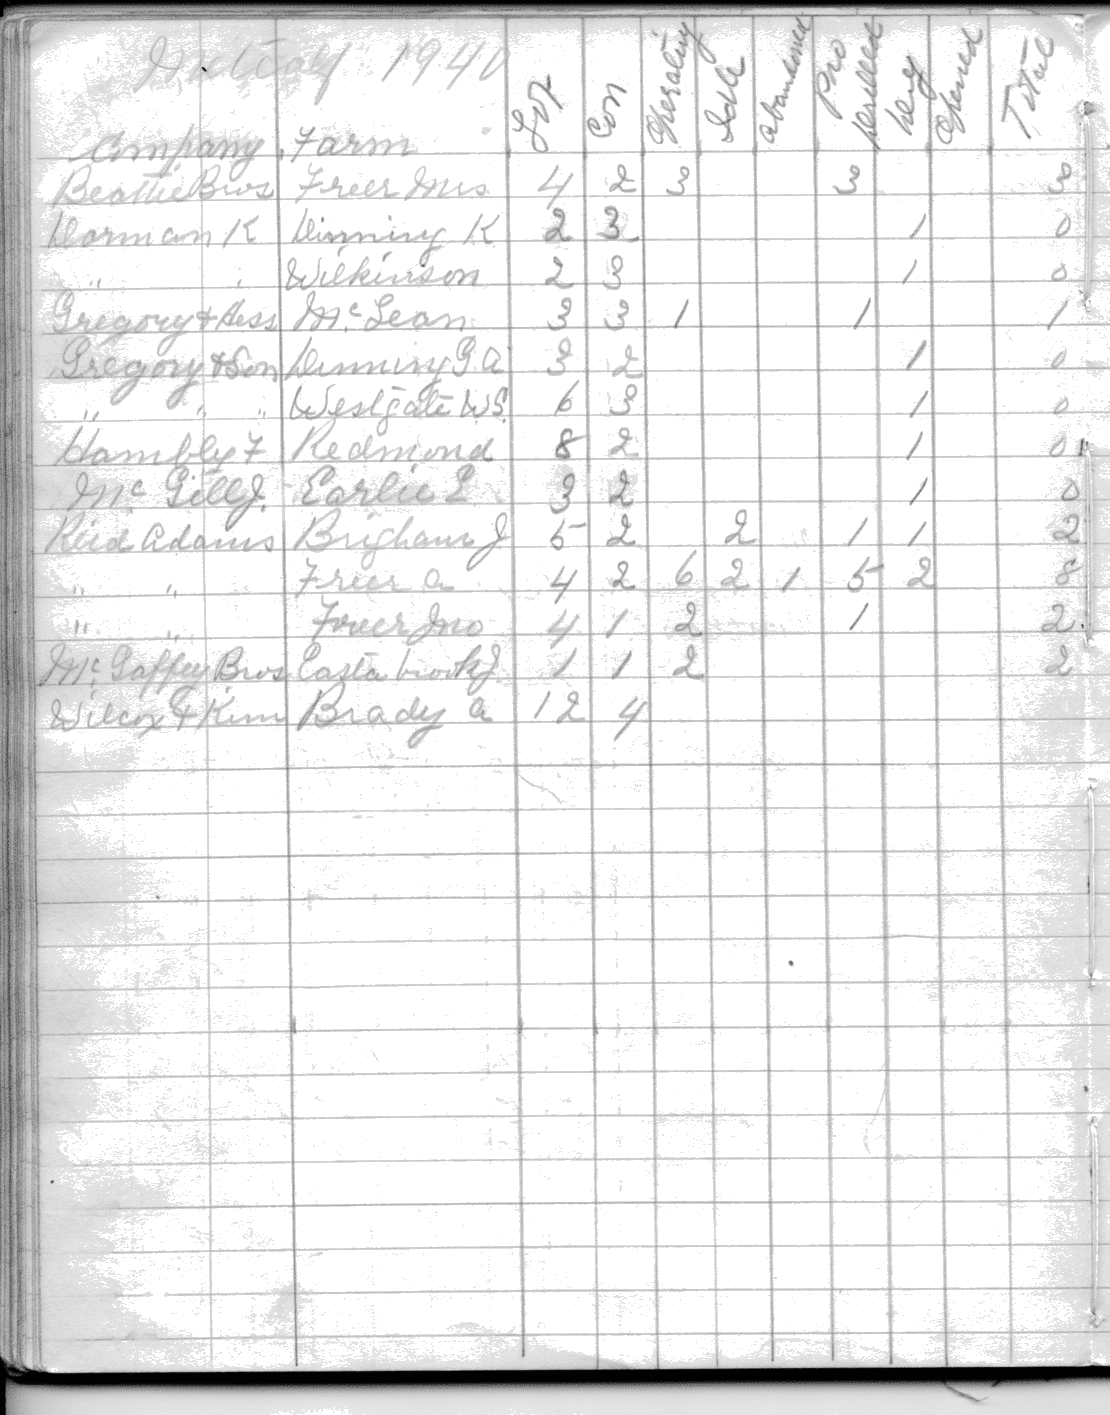 1940
Company Farm Lot Con Operating Idle abandoned Pro Drilled Dry Opened Total
Beattie Bros Freer Mrs 4 2 3 3 3
Dorman K Dinning K 2 3 1 0
" " Wilkinson 2 3 1 0
Gregory & Hess McLean 3 3 1 1 1
Gregory & Son Dinning G.A 3 2 1 0
" " " Westgate W.S. 6 3 1 0
Hambly F Redmond 8 2 1 0
McGill J. Earlie E 3 2 1 0
Reid Adams Brigham J 5 2 2 1 1 2
" " Freer A 4 2 6 2 1 5 2 8
" " Freer Jno 4 1 2 1 2
McGaffey Bros Eastabrook J 1 1 2 2
Wilcox & Kim Brady A 12 4